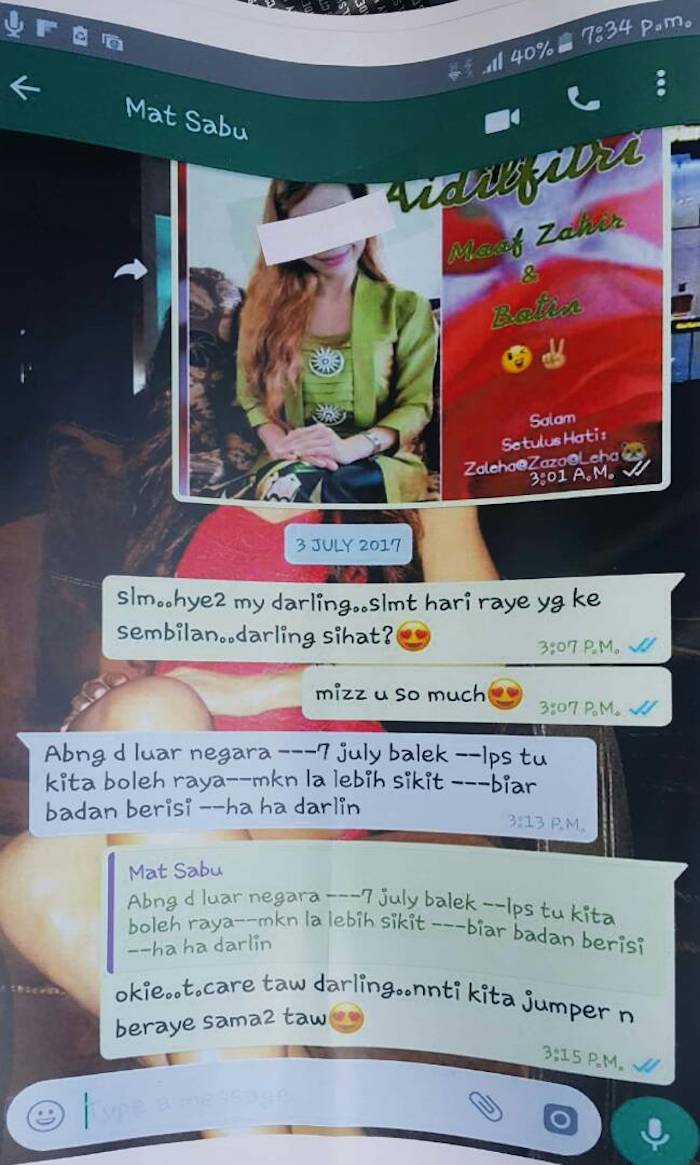 40% 7:34 p.m.
Mat Sabu
Aidilfitri
Maaf Zahir
&
Batin
😉✌
Salam
Setulus Hati:
Zaleha@Zaza@Leha🐹
3:01 A.M.
3 JULY 2017
slm..hye2 my darling..slmt hari raye yg ke
sembilan..darling sihat?😍
3:07 P.M.
mizz u so much😍
3:07 P.M.
Abng d luar negara ---7 july balek --lps tu
kita boleh raya--mkn la lebih sikit ---biar
badan berisi --ha ha darlin
3:13 P.M.
Mat Sabu
Abng d luar negara ---7 july balek --lps tu kita
boleh raya--mkn la lebih sikit ---biar badan berisi
--ha ha darlin
okie..t.care taw darling..nnti kita jumper n
beraye sama2 taw😍
3:15 P.M.
Type a message